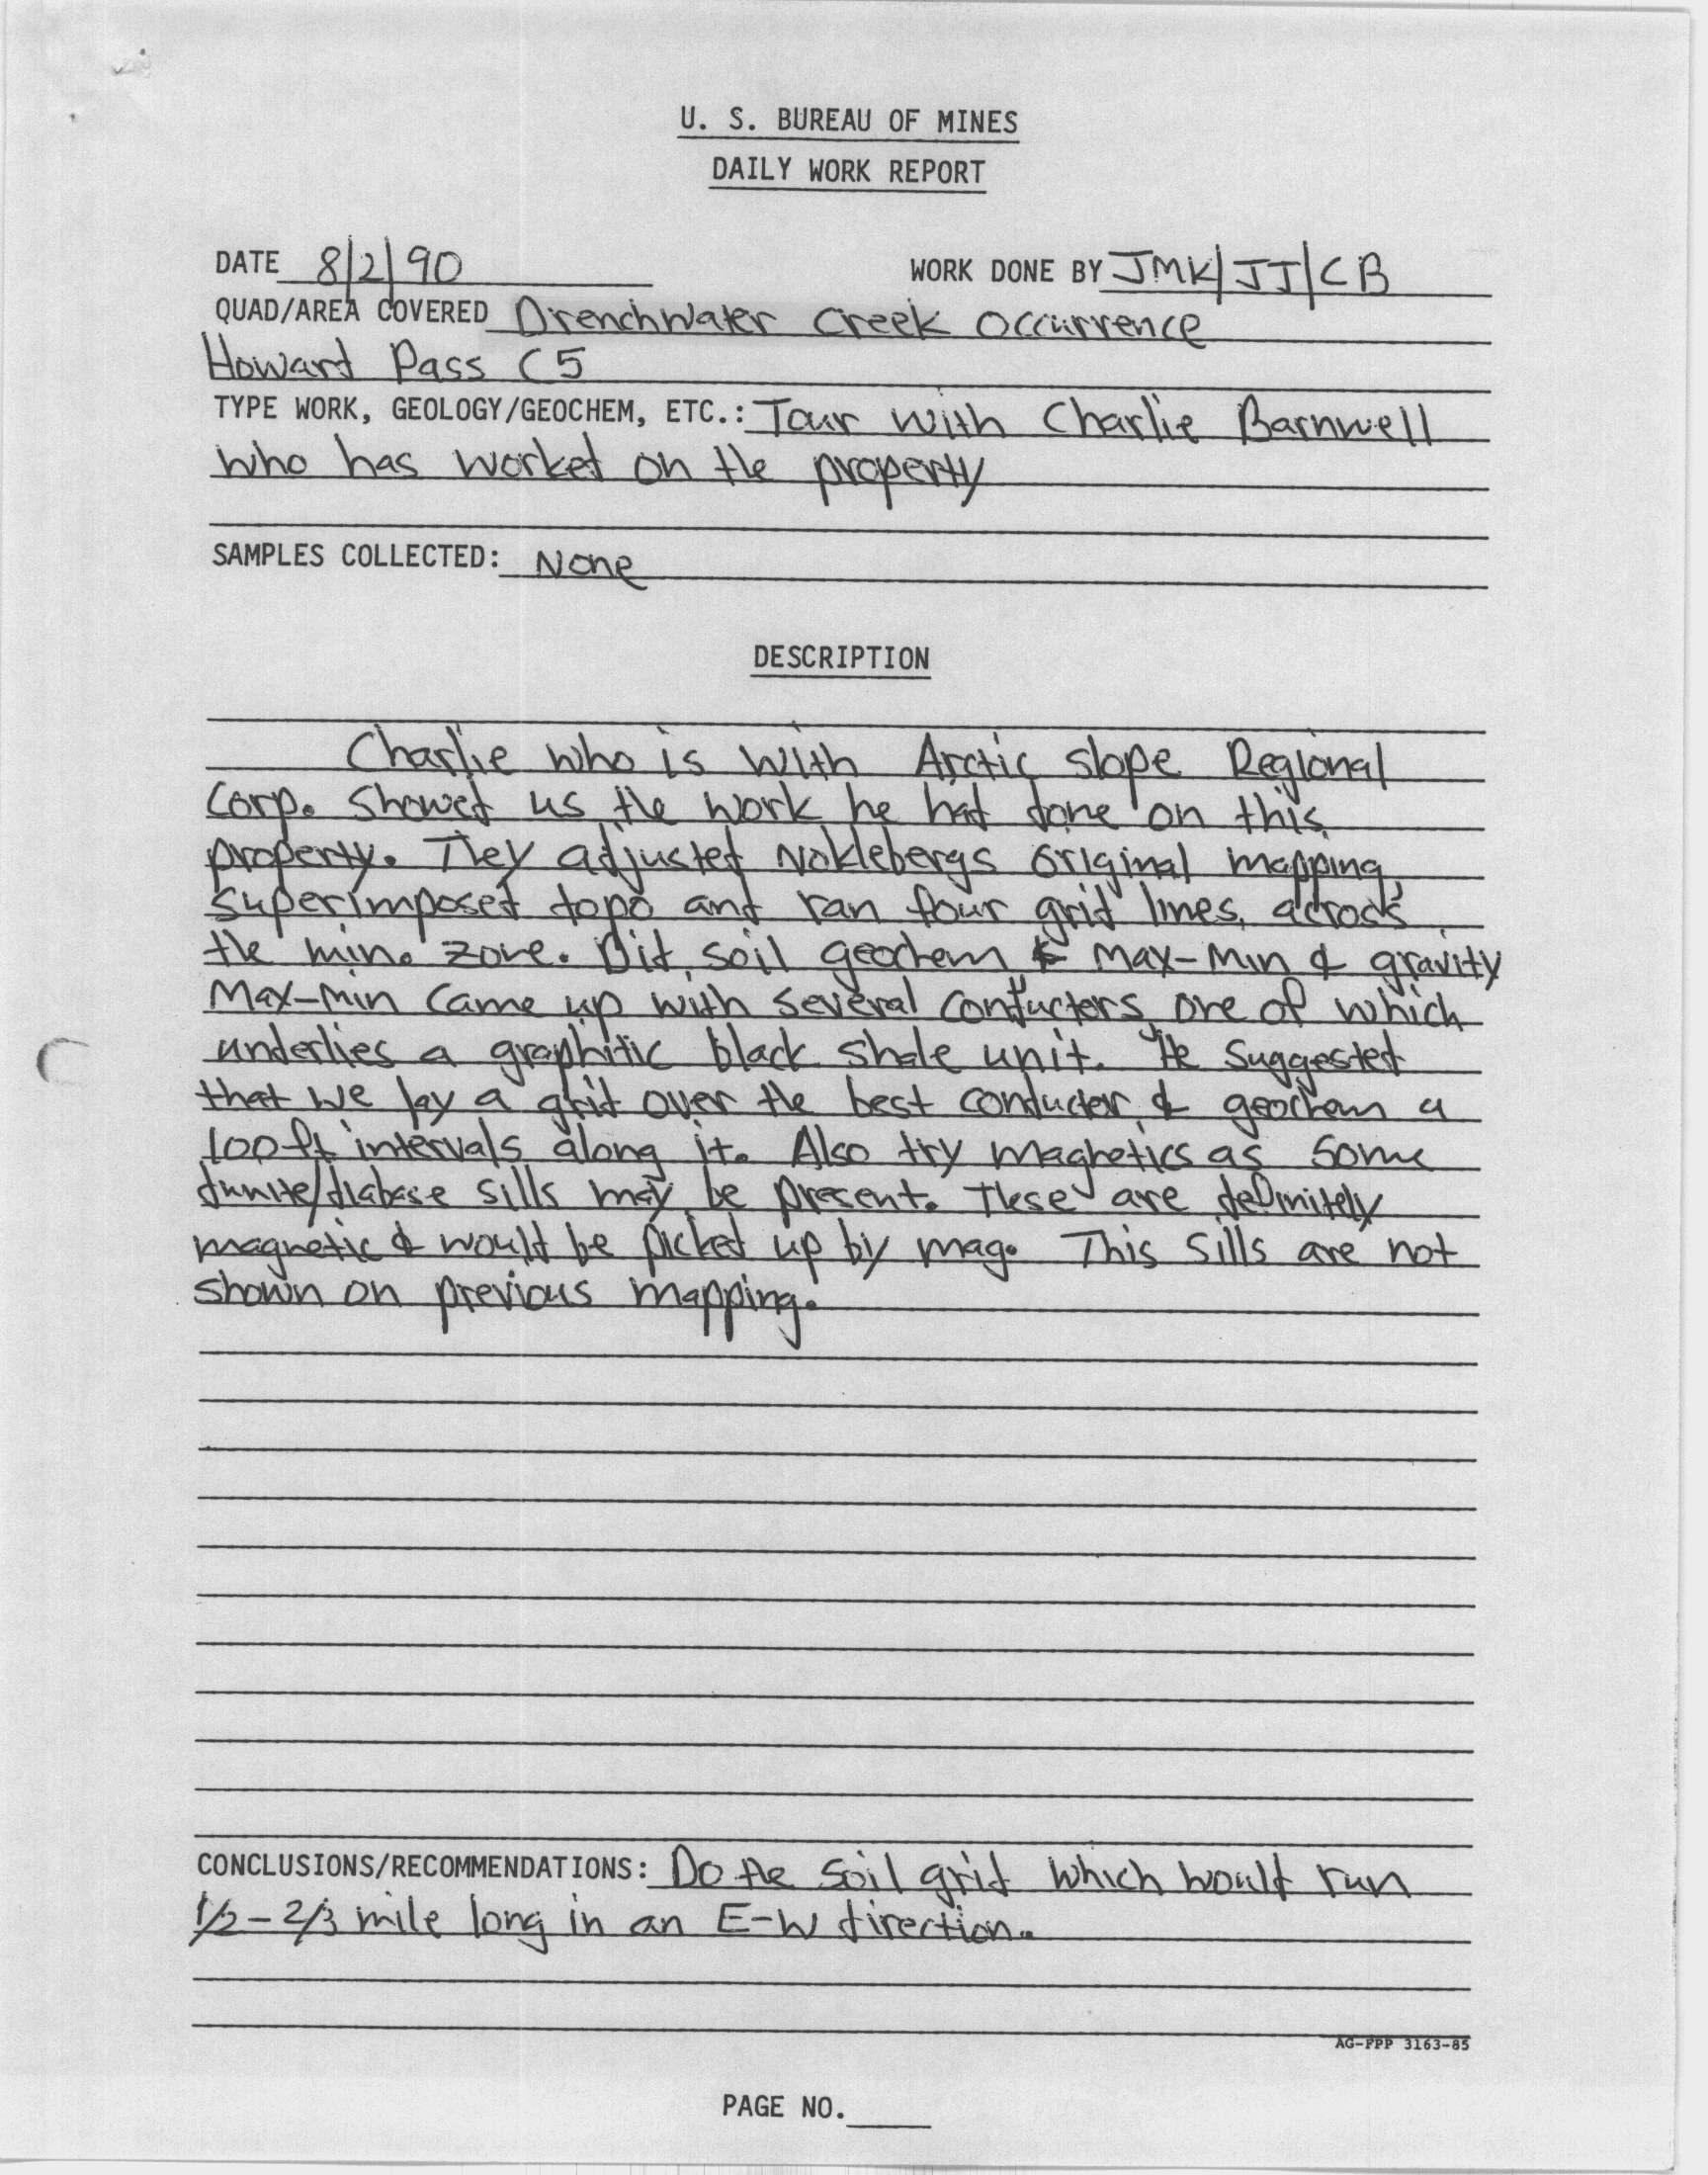 U. S. BUREAU OF MINES
DAILY WORK REPORT
DATE 8/2/90 WORK DONE BY JMK/JJ/CB
QUAD/AREA COVERED Drenchwater Creek Occurrence
Howard Pass C5
TYPE WORK, GEOLOGY/GEOCHEM, ETC.: Tour with Charlie Barnwell
who has worked on the property
SAMPLES COLLECTED: None
DESCRIPTION
Charlie who is with Arctic Slope Regional
Corp. showed us the work he had done on this
property. They adjusted Noklebergs original mapping,
superimposed topo and ran four grid lines across
the min. zone. Did soil geochem & Max-Min & gravity
Max-Min came up with several conductors one of which
underlies a graphitic black shale unit. He suggested
that we lay a grid over the best conductor & geochem a
100 ft intervals along it. Also try magnetics as some
dunite/diabase sills may be present. These are definitely
magnetic & would be picked up by mag. This sills are not
shown on previous mapping.
CONCLUSIONS/RECOMMENDATIONS: Do the soil grid which would run
1/2 - 2/3 mile long in an E-W direction.
AG-FPP 3163-85
PAGE NO.